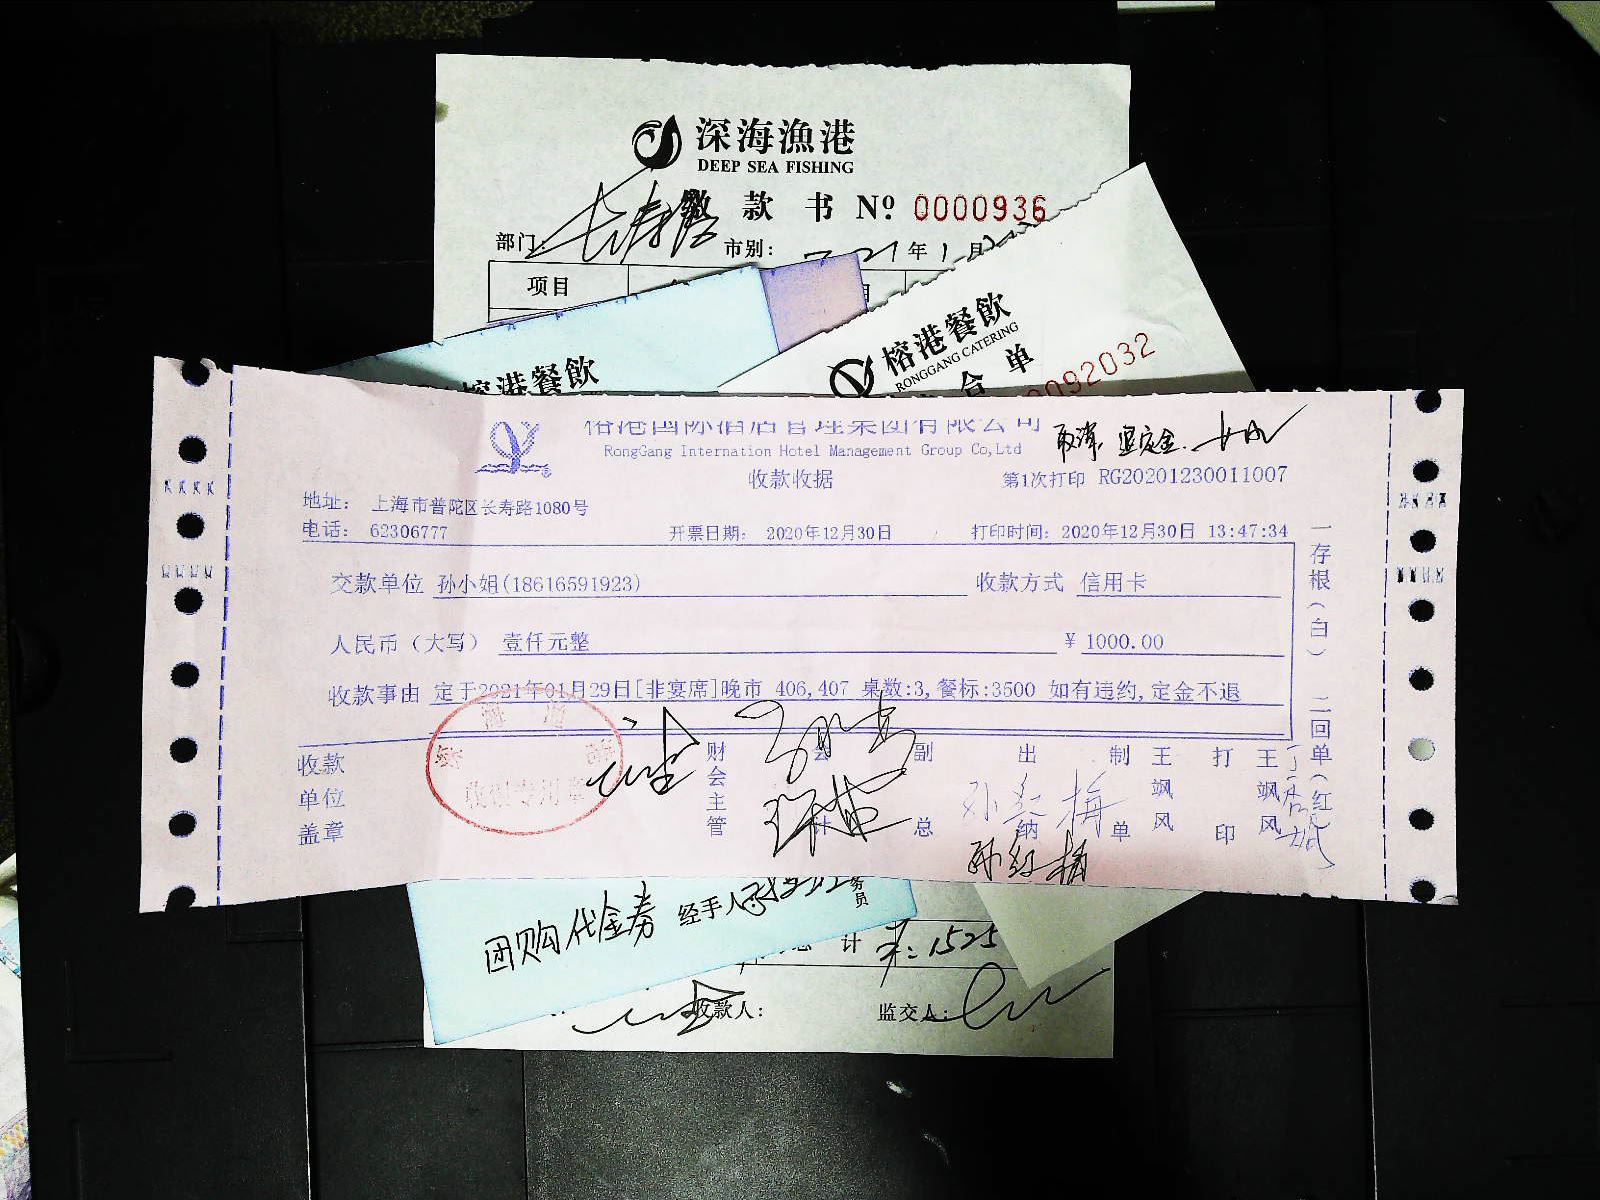 深海漁港
DEEP SEA FISHING
款 书 Nº 0000936
部门: 长寿路 市别: 21年1月
项目
榕港餐飲
RONGGANG CATERING
单 092032
榕港餐飲
榕港国际酒店管理集团有限公司
取消 退定金.
RongGang Internation Hotel Management Group Co,Ltd
收款收据 第1次打印 RG20201230011007
地址: 上海市普陀区长寿路1080号
电话: 62306777 开票日期: 2020年12月30日 打印时间: 2020年12月30日 13:47:34
交款单位 孙小姐(18616591923) 收款方式 信用卡
人民币（大写） 壹仟元整 ¥ 1000.00
收款事由 定于2021年01月29日[非宴席]晚市 406,407 桌数:3,餐标:3500 如有违约,定金不退
一存根(白) 二回单(红)
收款单位盖章 财会主管 会计 副总 出纳 孙红梅 制单 王飒风 打印 王飒风
收银专用章
孙红梅
团购代金券 经手人: 务员
总 计 1525
收款人: 监交人: